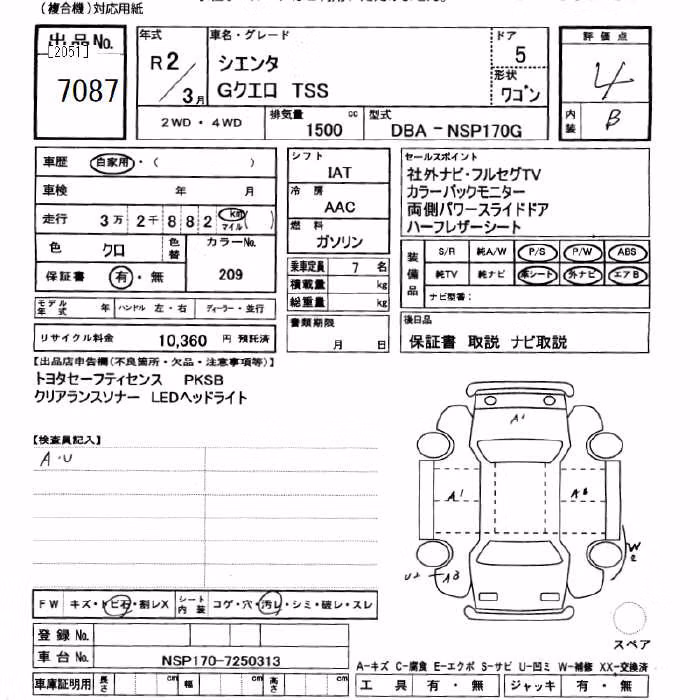 （複合機）対応用紙
出品No.
[2051]
7087
年式
R2
3月
車名・グレード
シエンタ
Gクエロ TSS
ドア
5
形状
ワゴン
評価点
4
内装
B
2WD・4WD
排気量
1500
cc
型式
DBA－NSP170G
車歴 自家用・（ ）
車検 年 月
走行 3万2千882 km マイル
色 クロ
色替
カラーNo.
209
保証書 有・無
モデル年式 年
ハンドル 左・右
ディーラー・並行
リサイクル料金 10,360 円 預託済
シフト
IAT
冷房
AAC
燃料
ガソリン
乗車定員 7 名
積載量 kg
総重量 kg
書類期限
月 日
セールスポイント
社外ナビ・フルセグTV
カラーバックモニター
両側パワースライドドア
ハーフレザーシート
装備品
S/R 純A/W P/S P/W ABS
純TV 純ナビ 革シート 外ナビ エアB
ナビ型番：
後日品
保証書 取説 ナビ取説
【出品店申告欄(不良箇所・欠品・注意事項等)】
トヨタセーフティセンス PKSB
クリアランスソナー LEDヘッドライト
【検査員記入】
A・U
A1
A1
U2 A3
W2
FW キズ・トビ石・割レX
シート内装 コゲ・穴・汚レ・シミ・破レ・スレ
登録No.
車台No. NSP170-7250313
車庫証明用 長さ cm 幅 cm 高さ cm
スペア
A-キズ C-腐食 E-エクボ S-サビ U-凹ミ W-補修 XX-交換済
工具 有・無 ジャッキ 有・無